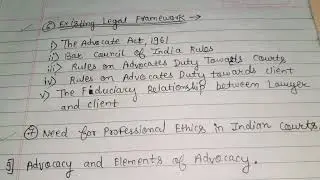 ⑥ Existing Legal Framework →
i) The Advocate Act, 1961
ii) Bar Council of India Rules
iii) Rules on Advocates Duty Towards Courts
iv) Rules on Advocates Duty towards client
v) The Fiduciary Relationship between Lawyer and client
⑦ Need for Professional Ethics in Indian Courts.
5] Advocacy and Elements of Advocacy.